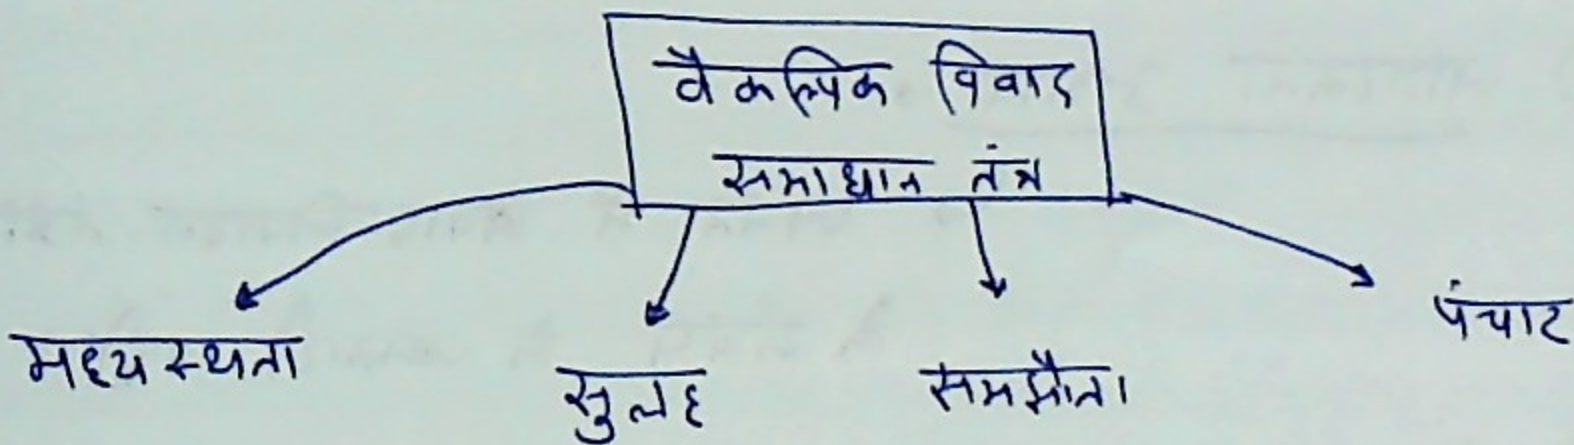 वैकल्पिक विवाद
समाधान तंत्र
मध्यस्थता
सुलह
समझौता
पंचाट